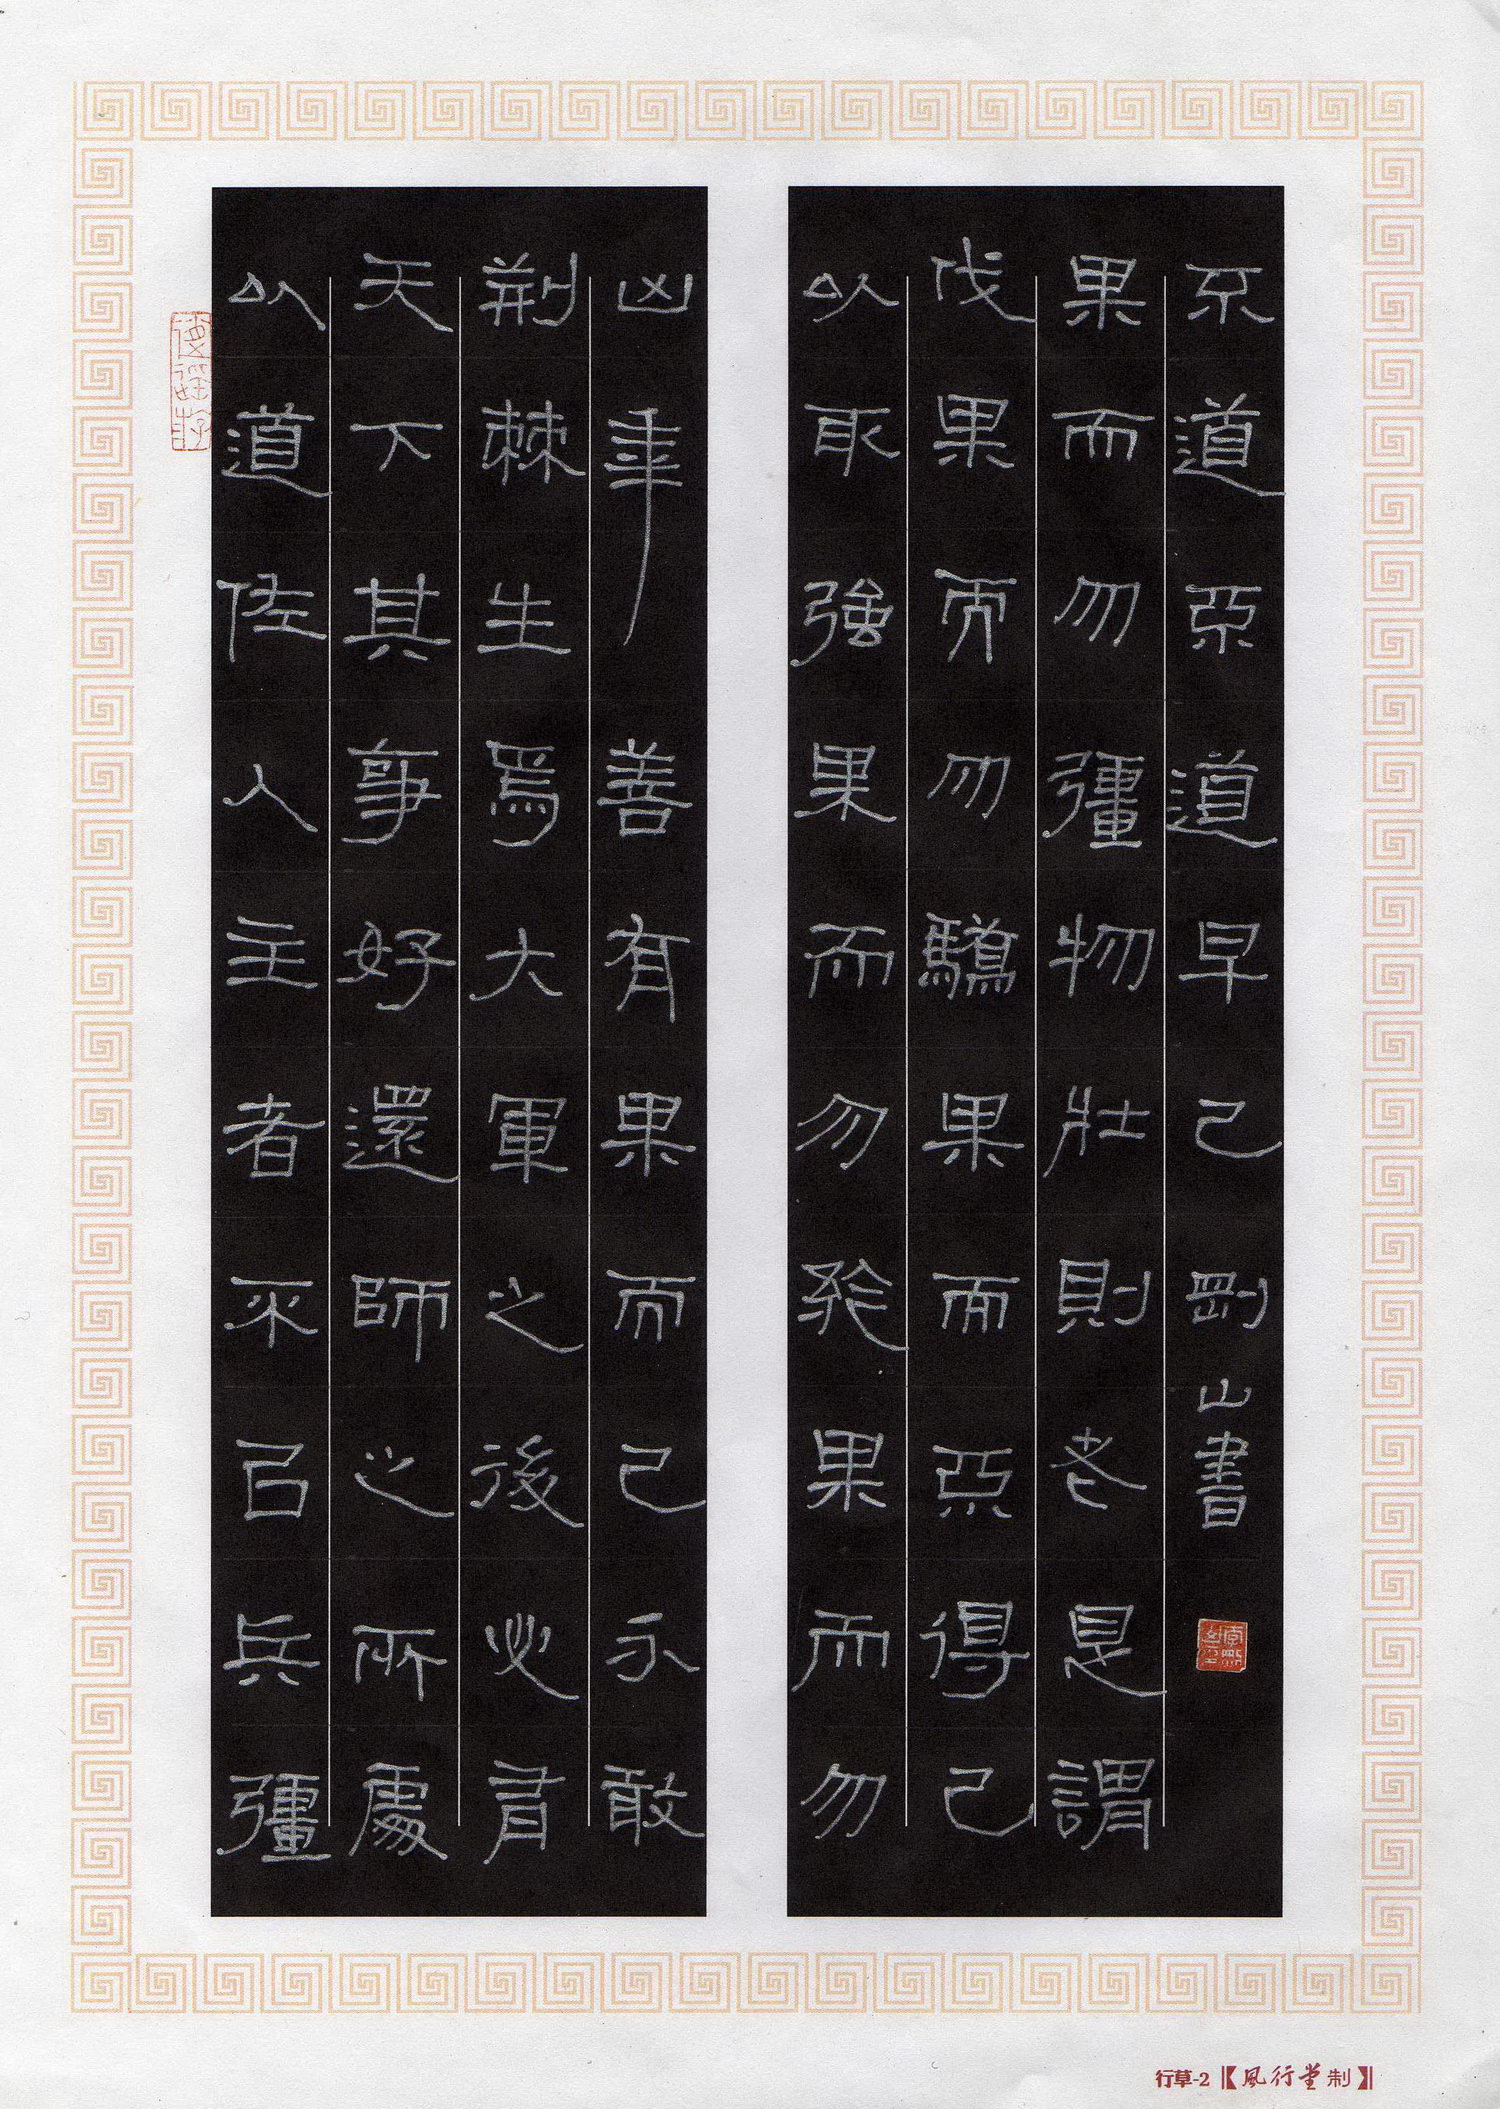 以道佐人主者不以兵彊
天下其事好還師之所處
荆棘生焉大軍之後必有
凶年善有果而已不敢
以取強果而勿矜果而勿
伐果而勿驕果而不得已
果而勿彊物壯則老是謂
不道不道早已剛山書
行草-2【風行堂制】